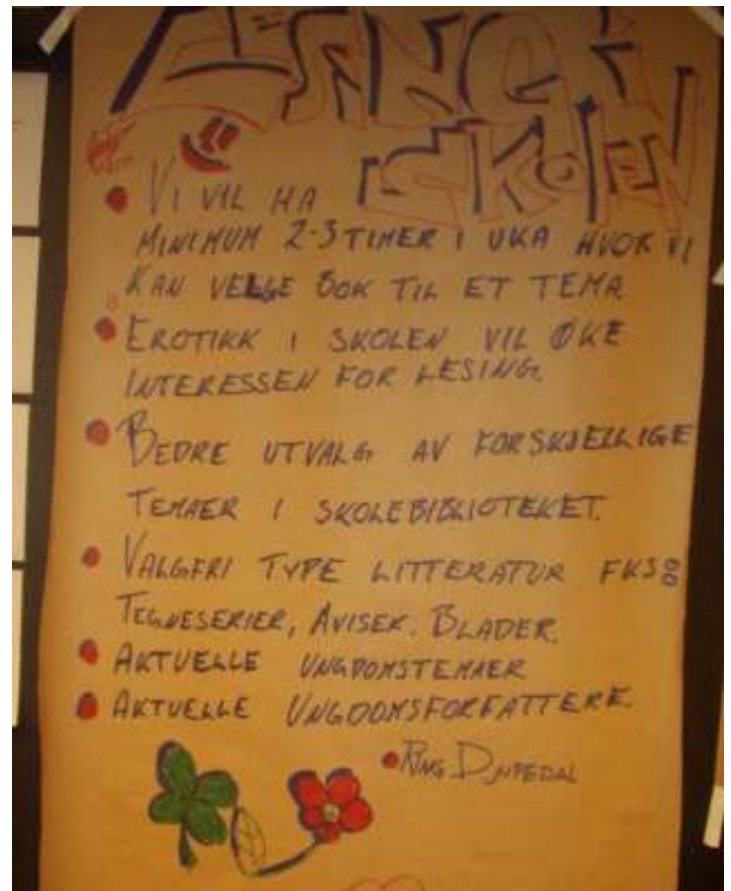 SKOLEN
• VI VIL HA
MINIMUM 2-3 TIMER I UKA HVOR VI
KAN VELGE BOK TIL ET TEMA
• EROTIKK I SKOLEN VIL ØKE
INTERESSEN FOR LESING.
• BEDRE UTVALG AV FORSKJELLIGE
TEMAER I SKOLEBIBLIOTEKET.
• VALGFRI TYPE LITTERATUR FKS:
TEGNESERIER, AVISER. BLADER.
• AKTUELLE UNGDOMSTEMAER
• AKTUELLE UNGDOMSFORFATTERE.
• RING